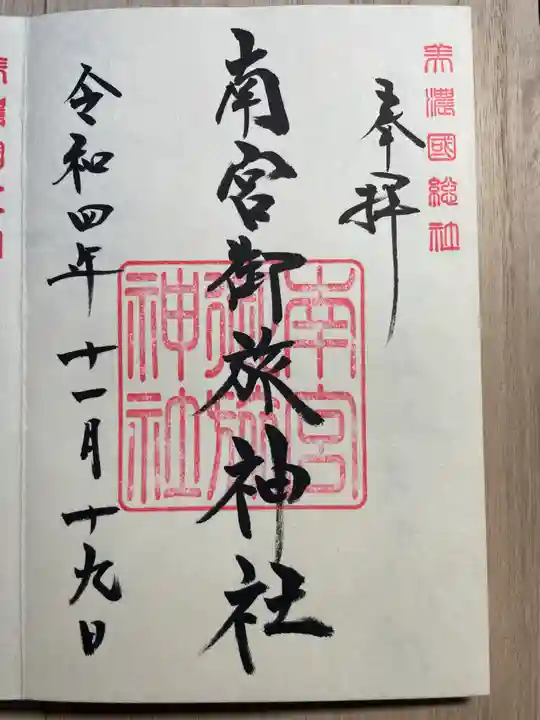 美濃國総社
奉拝
南宮御旅神社
南宮
御旅
神社
令和四年十一月十九日